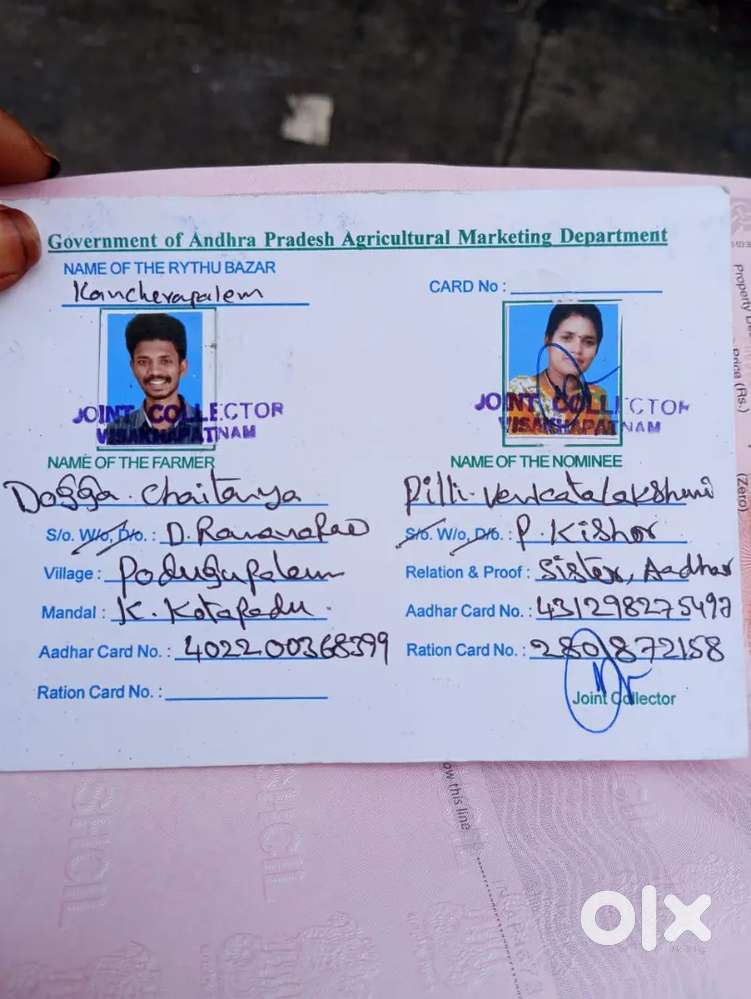 Government of Andhra Pradesh Agricultural Marketing Department
NAME OF THE RYTHU BAZAR
Kancherapalem
CARD No :
JOINT COLLECTOR
VISAKHAPATNAM
JOINT COLLECTOR
VISAKHAPATNAM
NAME OF THE FARMER
Dogga. Chaitanya
S/o. W/o, D/o. : D. Ramanarao
Village : Podugupalem
Mandal : K. Kotapadu.
Aadhar Card No. : 402200368399
Ration Card No. :
NAME OF THE NOMINEE
Pilli. Venkatalakshmi
S/o. W/o, D/o. : P. Kishor
Relation & Proof : Sister, Aadhar
Aadhar Card No. : 431298275497
Ration Card No. : 2801872158
Joint Collector
Property D
Price (Rs.)
(Zero)
ow this line
SHCIL
olx